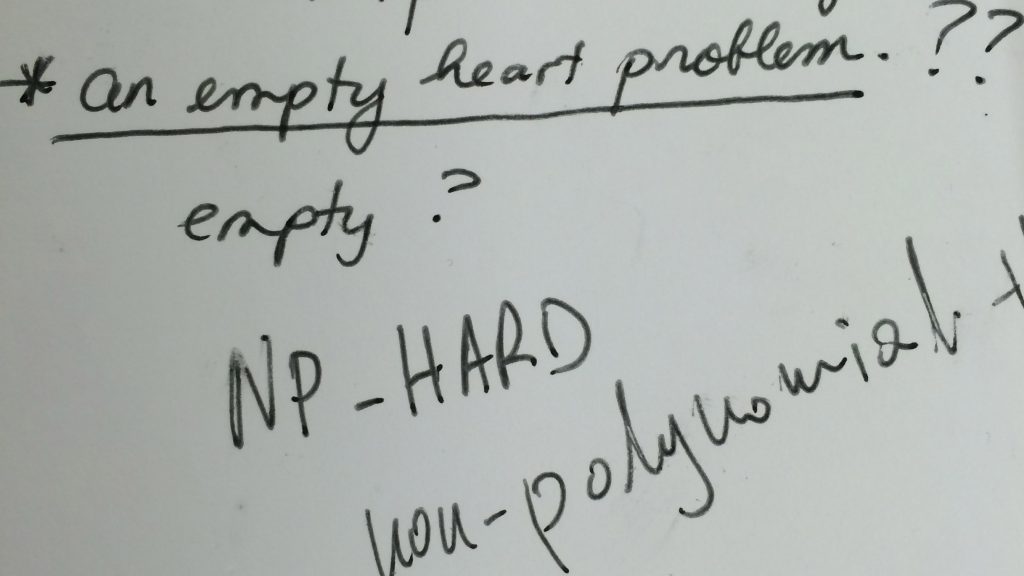 * an empty heart problem. ??
empty ?
NP-HARD
non-polynomial t